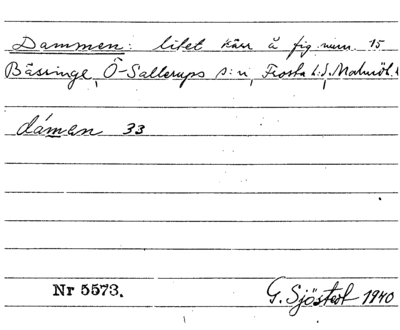 Dammen: litet kärr å fig. num. 15
Bäsinge, Ö-Sallerups s:n, Frosta h:d, Malmöh. l.
dámen 33
Nr 5573.
G. Sjöstedt 1940